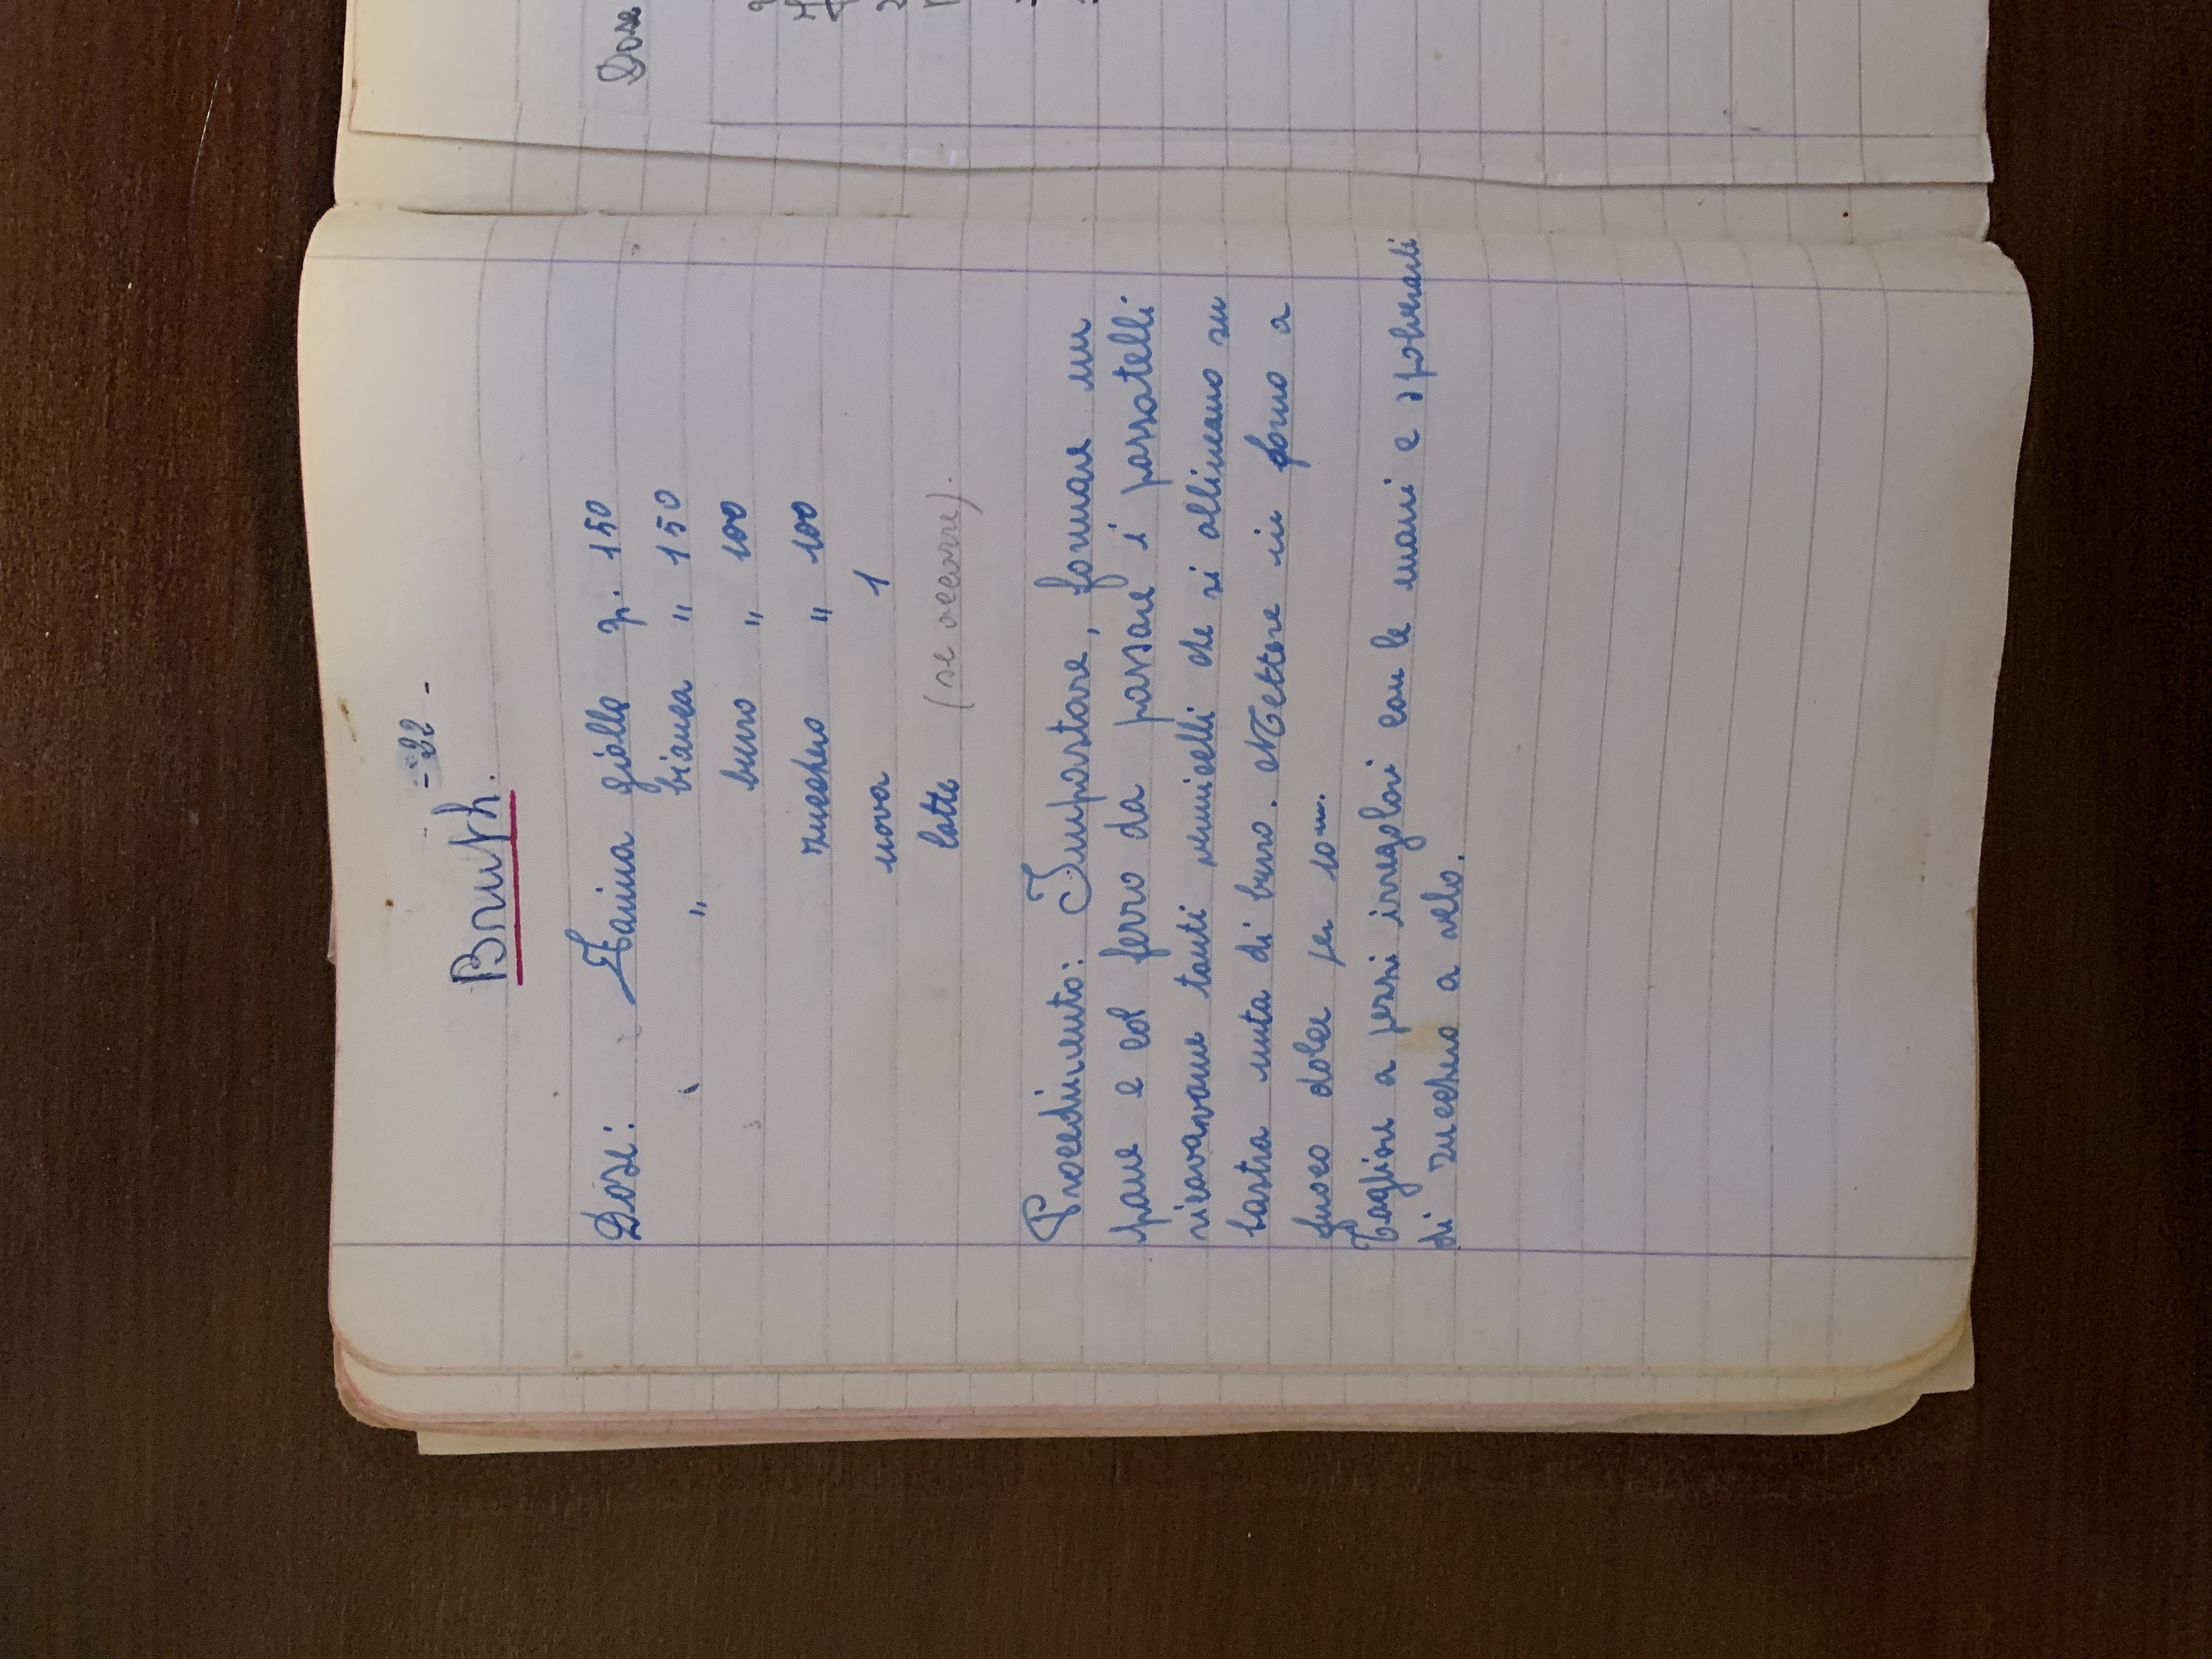 - 22 -
Bruth.
Dose: Farina gialla gr. 150
" bianca " 150
burro " 100
zucchero " 100
uova 1
latte (se occorre).
Procedimento: Impastare, formare un
pane e col ferro da passare i passatelli
ricavavane tanti vermicelli che si allineano su
lastra unta di burro. Mettere in forno a
fuoco dolce per 10 m.
Tagliare a pezzi irregolari con le mani e spolverarli
di zucchero a velo.
Dose